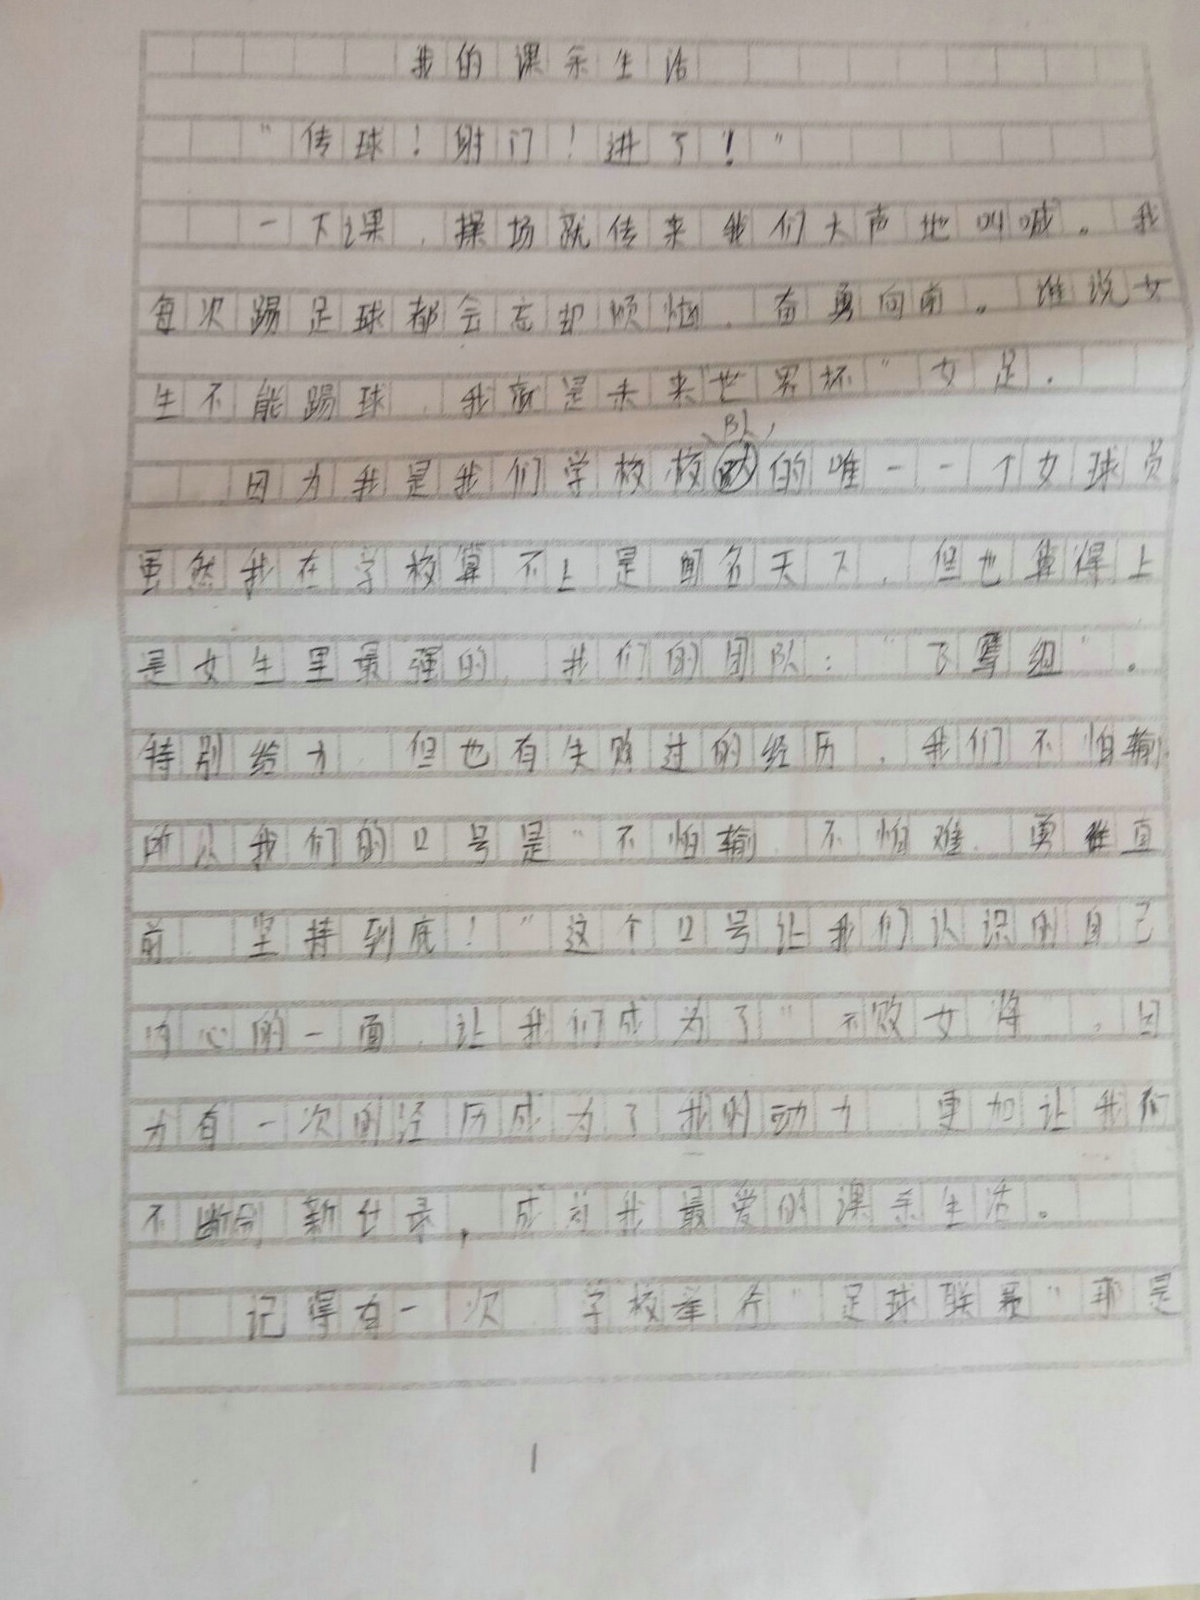 我的课余生活
“传球！射门！进了！”
一下课，操场就传来我们大声地叫喊。我
每次踢足球都会忘却烦恼，奋勇向前。谁说女
生不能踢球，我就是未来“世界杯”女足．
队
因为我是我们学校校的唯一一个女球员
虽然我在学校算不上是闻名天下，但也算得上
是女生里最强的，我们的团队：“飞鹰组”。
特别给力，但也有失败过的经历，我们不怕输
所以我们的口号是“不怕输、不怕难、勇往直
前、坚持到底！”这个口号让我们认识的自己
内心的一面，让我们成为了“不败女将”，因
为有一次的经历成为了我的动力，更加让我们
不断刷新仕录，成为我最爱的课余生活。
记得有一次，学校举办“足球联赛”那是
1